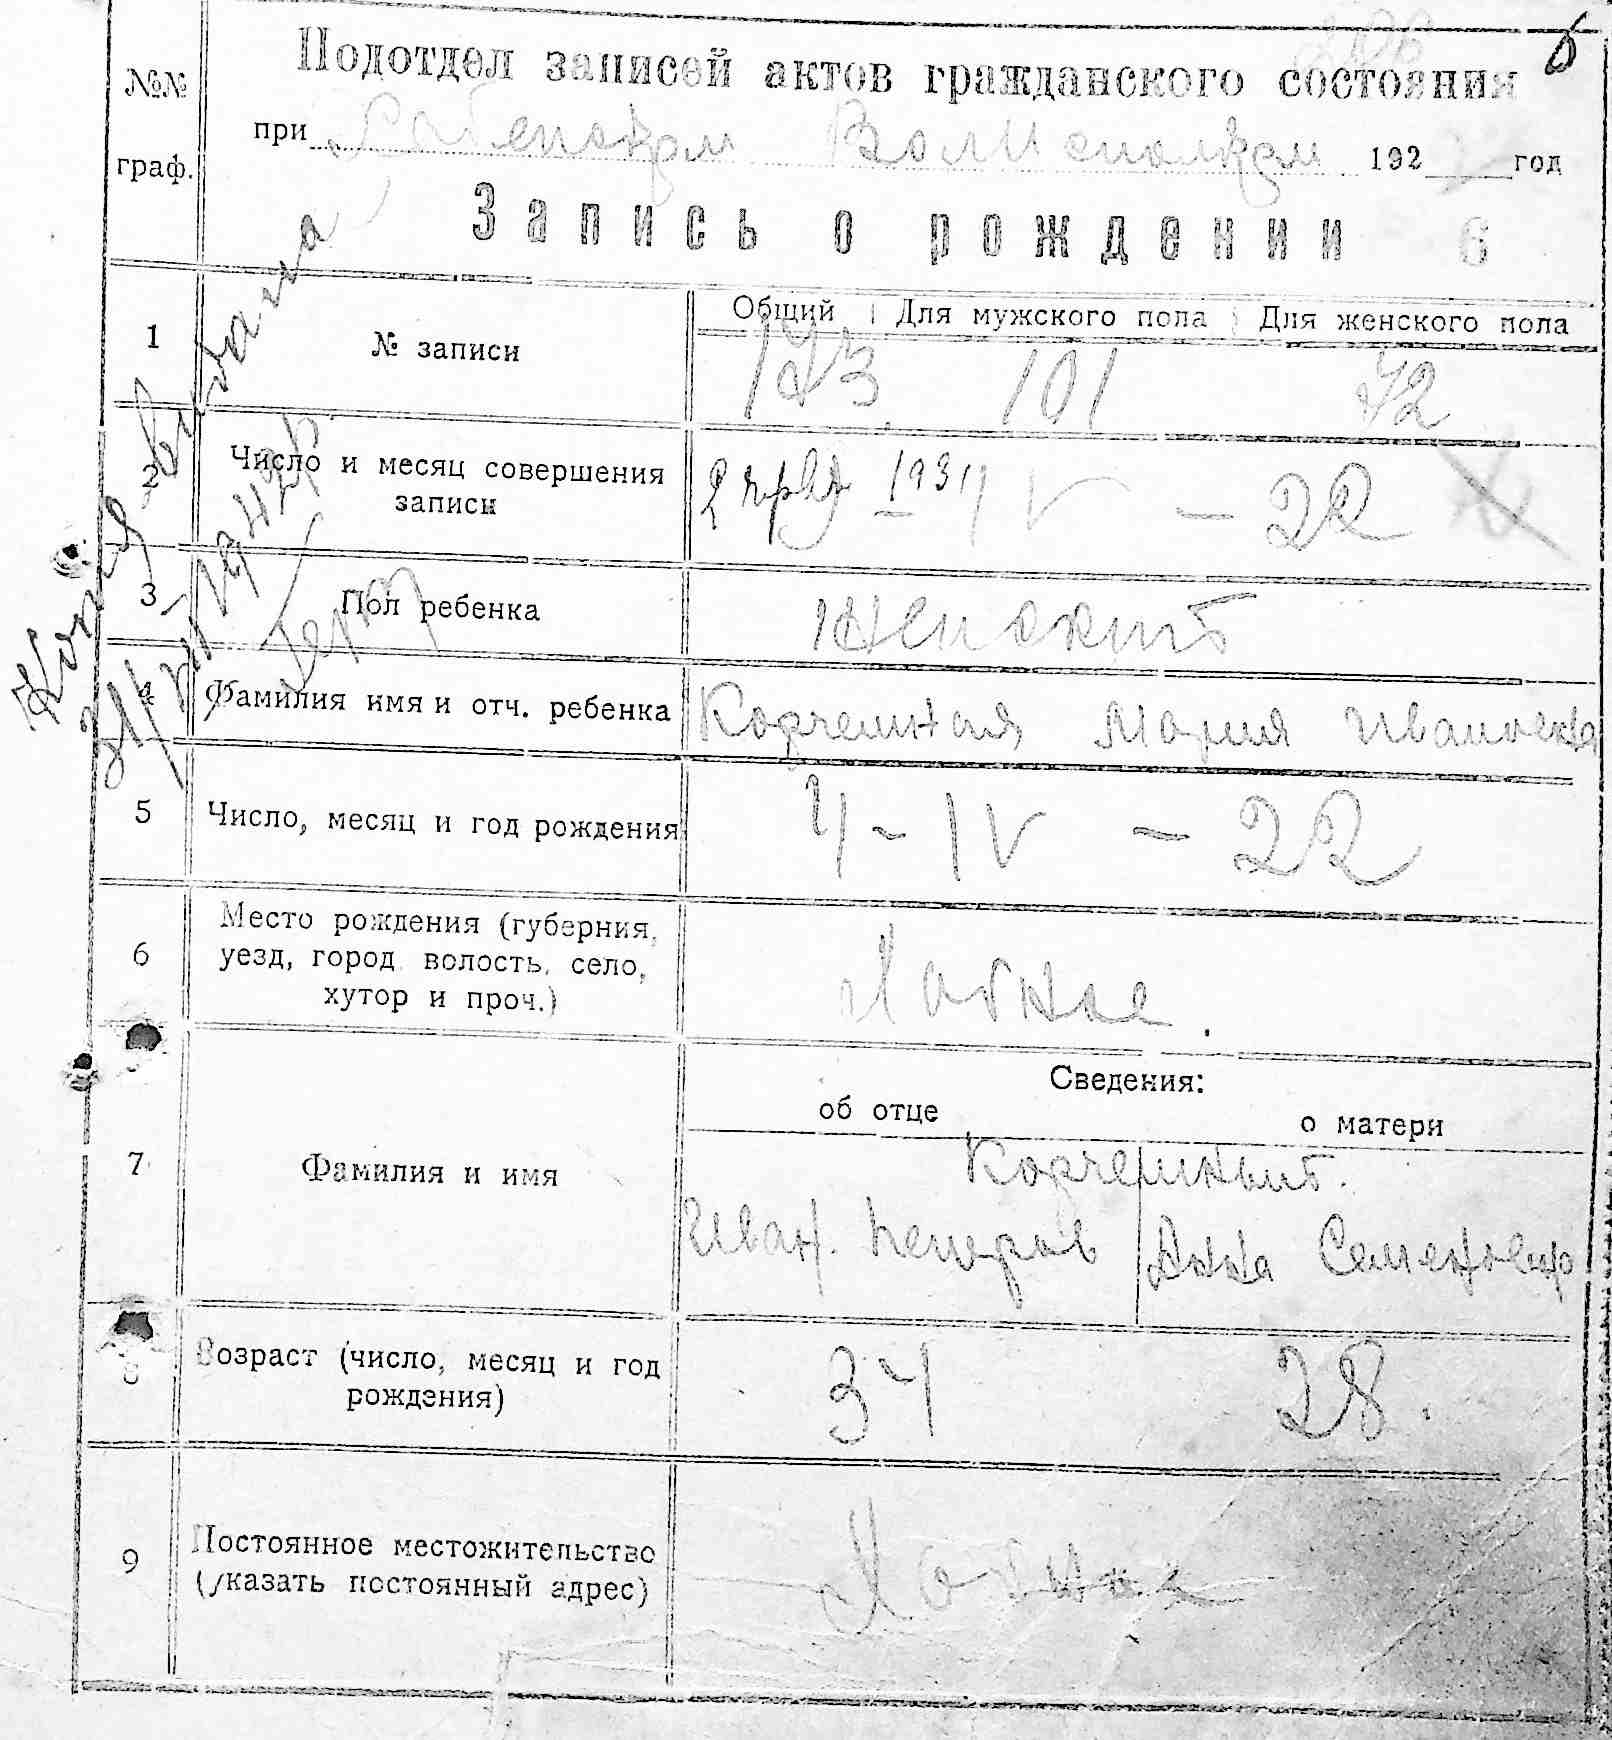 №№ граф.
Подотдел записей актов гражданского состояния
при Волисполком 192 год
Запись о рождении 6
Копия выдана
1 № записи
Общий Для мужского пола Для женского пола
173 101 72
2 Число и месяц совершения записи
1931 IV – 22
3 Пол ребенка
Женский
4 Фамилия имя и отч. ребенка
Корчемная Мария Ивановна
5 Число, месяц и год рождения
4 - IV – 22
6 Место рождения (губерния, уезд, город, волость, село, хутор и проч.)
Лабное.
Сведения:
об отце о матери
7 Фамилия и имя
Корчемный.
Иван. Петров Анна Семенов
8 Возраст (число, месяц и год рождения)
34 28.
9 Постоянное местожительство (указать постоянный адрес)